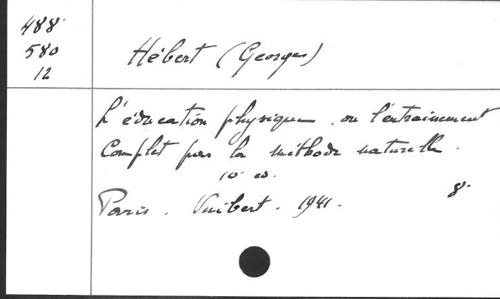 488
580
12
Hébert (Georges)
L'éducation physique ou l'entrainement
Complet par la méthode naturelle.
10e ed.
Paris. Vuibert. 1941. 8°